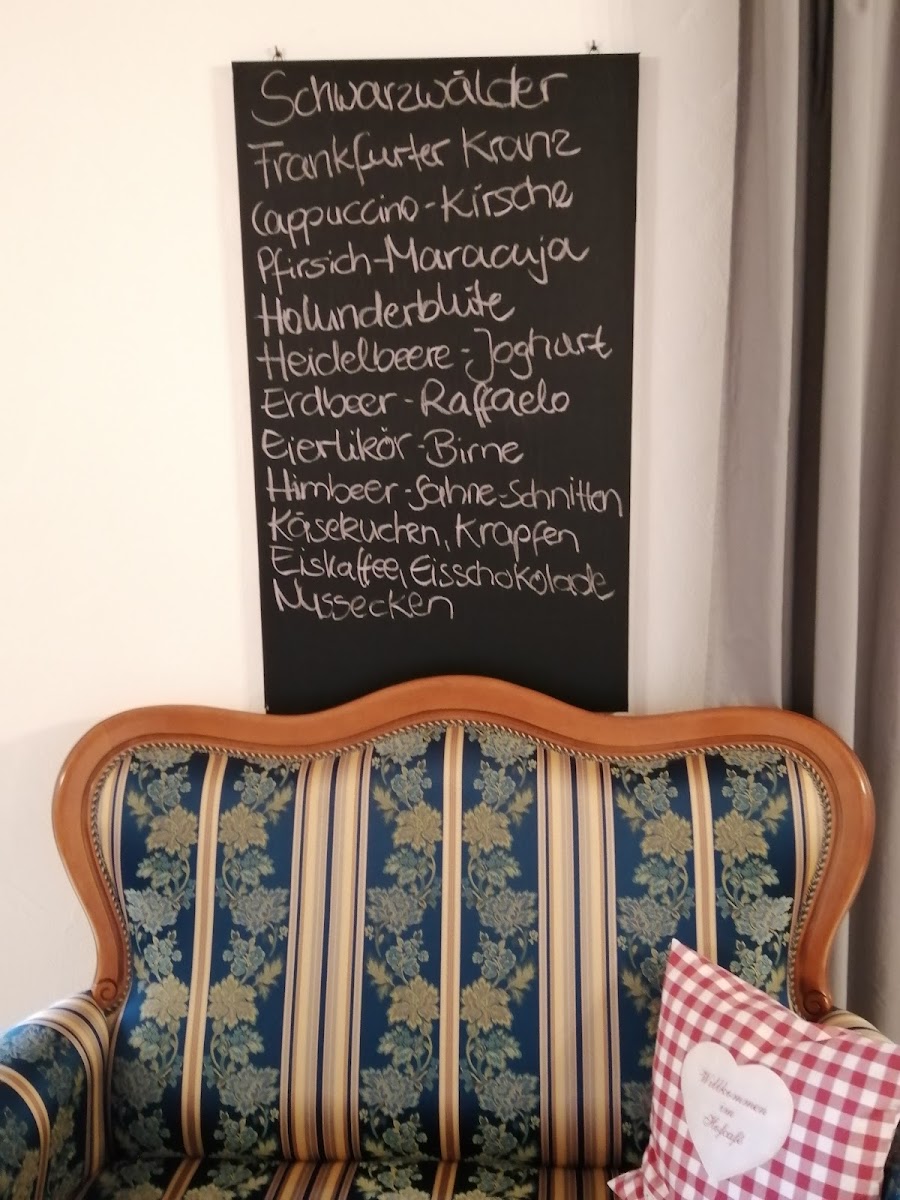 Schwarzwälder
Frankfurter Kranz
Cappuccino-Kirsche
Pfirsich-Maracuja
Holunderblüte
Heidelbeere-Joghurt
Erdbeer-Raffaelo
Eierlikör-Birne
Himbeer-Sahne-Schnitten
Käsekuchen, Krapfen
Eiskaffee, Eisschokolade
Nussecken
Willkommen
im
Hofcafé